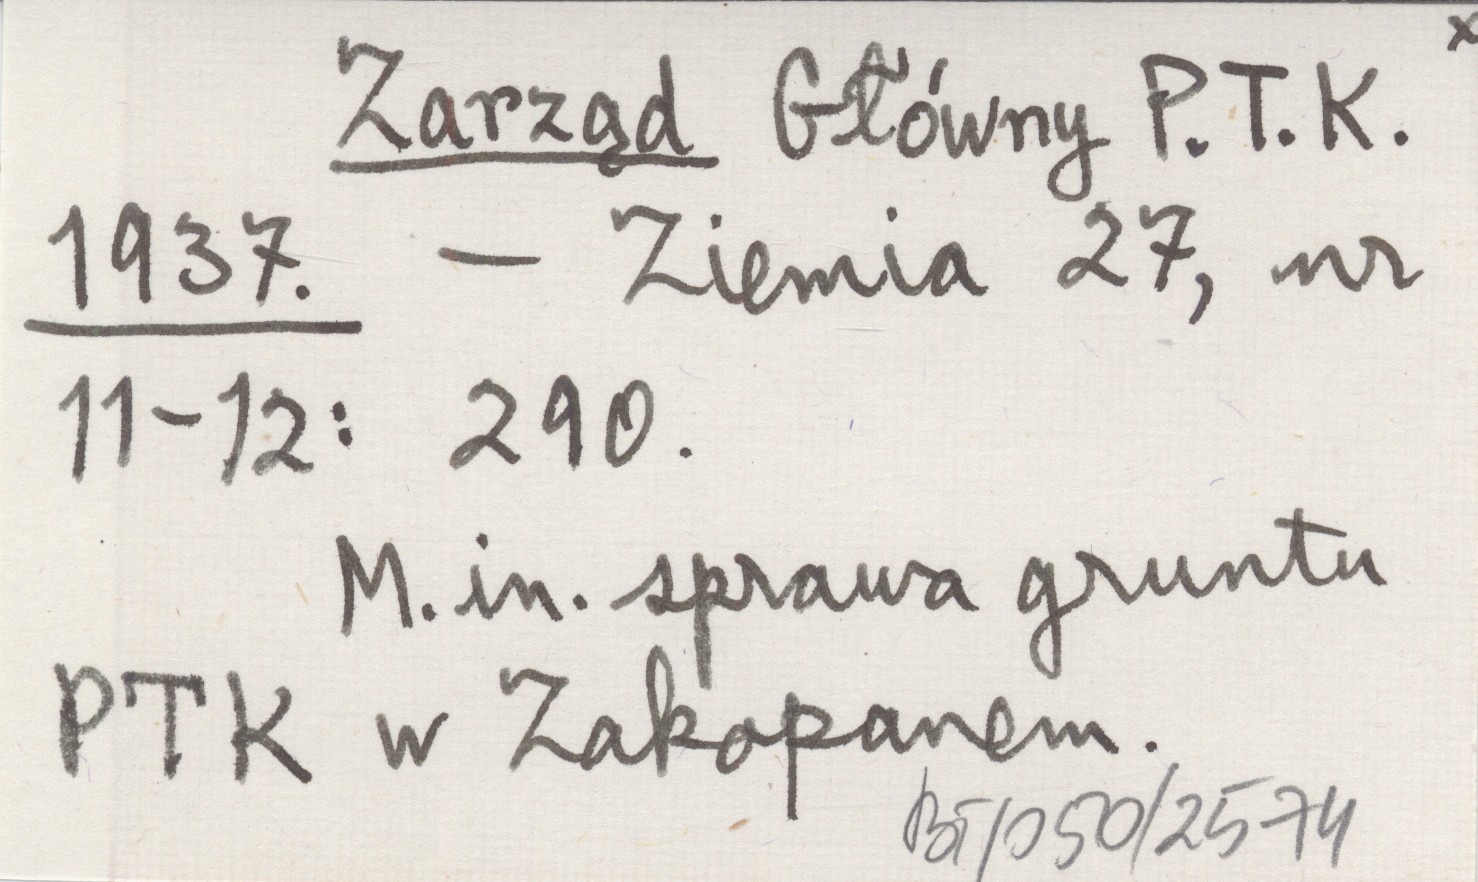 x
Zarząd Główny P.T.K.
1937. — Ziemia 27, nr
11-12: 290.
M.in. sprawa gruntu
PTK w Zakopanem.
BT/050/2574